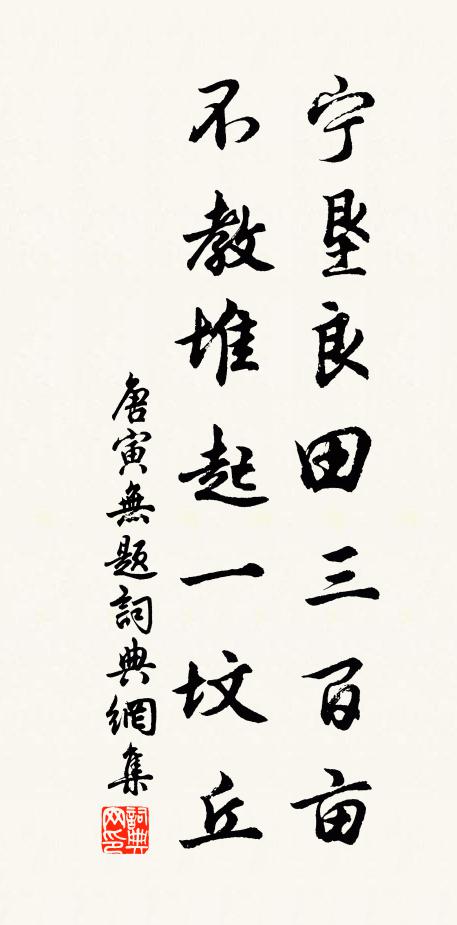 宁垦良田三百亩
不教堆起一坟丘
唐寅無题詞典網集
詞典网印